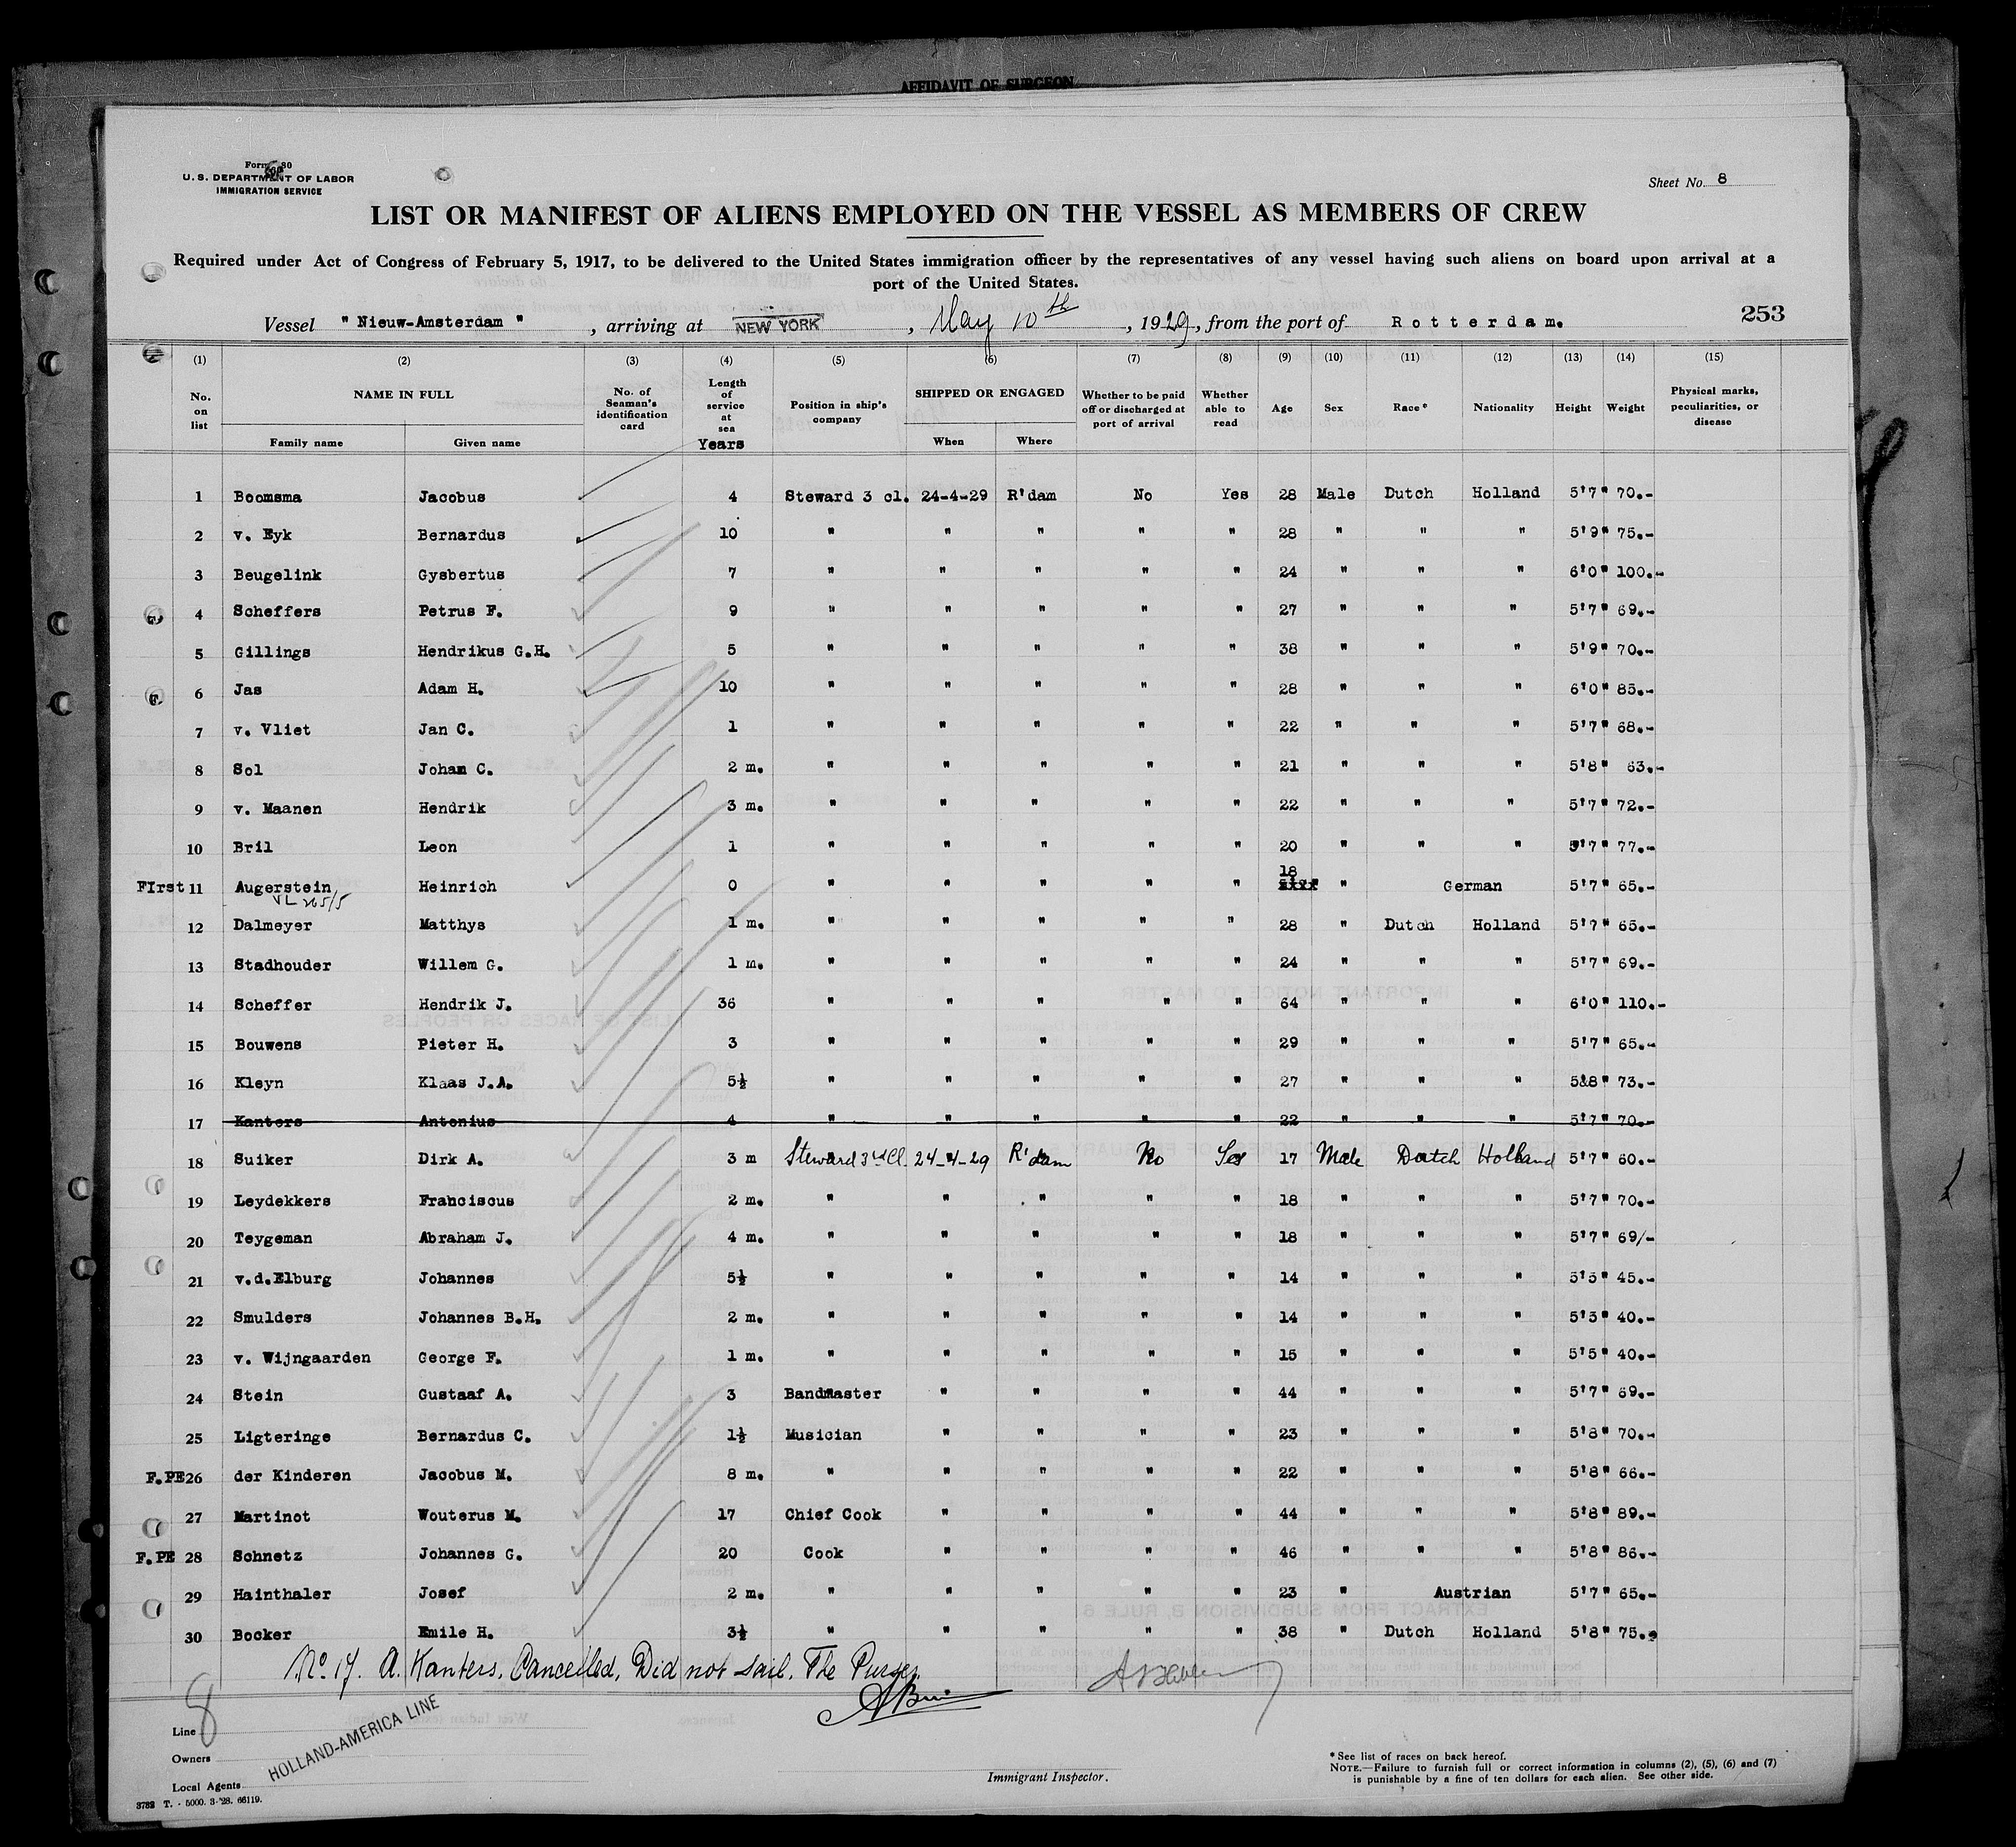 AFFIDAVIT OF SURGEON
U. S. DEPARTMENT OF LABOR
IMMIGRATION SERVICE
Sheet No. 8
LIST OR MANIFEST OF ALIENS EMPLOYED ON THE VESSEL AS MEMBERS OF CREW
Required under Act of Congress of February 5, 1917, to be delivered to the United States immigration officer by the representatives of any vessel having such aliens on board upon arrival at a
port of the United States.
Vessel " Nieuw-Amsterdam " , arriving at NEW YORK , May 10th , 1929, from the port of Rotterdam. 253
(1) (2) (3) (4) (5) (6) (7) (8) (9) (10) (11) (12) (13) (14) (15)
No. on list NAME IN FULL Family name Given name No. of Seaman's identification card Length of service at sea Years Position in ship's company SHIPPED OR ENGAGED When Where Whether to be paid off or discharged at port of arrival Whether able to read Age Sex Race* Nationality Height Weight Physical marks, peculiarities, or disease
1 Boomsma Jacobus 4 Steward 3 cl. 24-4-29 R'dam No Yes 28 Male Dutch Holland 5'7" 70.-
2 v. Eyk Bernardus 10 " " " " " 28 " " " 5'9" 75.-
3 Beugelink Gysbertus 7 " " " " " 24 " " " 6'0" 100.-
4 Scheffers Petrus F. 9 " " " " " 27 " " " 5'7" 69.-
5 Gillings Hendrikus G.H. 5 " " " " " 38 " " " 5'9" 70.-
6 Jas Adam H. 10 " " " " " 28 " " " 6'0" 85.-
7 v. Vliet Jan C. 1 " " " " " 22 " " " 5'7" 68.-
8 Sol Johan C. 2 m. " " " " " 21 " " " 5'8" 63.-
9 v. Maanen Hendrik 3 m. " " " " " 22 " " " 5'7" 72.-
10 Bril Leon 1 " " " " " 20 " " " 5'7" 77.-
FIrst 11 Augerstein Heinrich 0 " " " " " 18 " German 5'7" 65.-
12 Dalmeyer Matthys 1 m. " " " " " 28 " Dutch Holland 5'7" 65.-
13 Stadhouder Willem G. 1 m. " " " " " 24 " " " 5'7" 69.-
14 Scheffer Hendrik J. 36 " " " " " 64 " " " 6'0" 110.-
15 Bouwens Pieter H. 3 " " " " " 29 " " " 5'7" 65.-
16 Kleyn Klaas J.A. 5½ " " " " " 27 " " " 5&8" 73.-
17 Kanters Antonius 4 " " " " " 22 " " " 5'7" 70.-
18 Suiker Dirk A. 3 m Steward 3rd Cl. 24-4-29 R'dam No Yes 17 Male Dutch Holland 5'7" 60.-
19 Leydekkers Franciscus 2 m. " " " " " 18 " " " 5'7" 70.-
20 Teygeman Abraham J. 4 m. " " " " " 18 " " " 5'7" 69/-
21 v.d.Elburg Johannes 5½ " " " " " 14 " " " 5'5" 45.-
22 Smulders Johannes B.H. 2 m. " " " " " 14 " " " 5'3" 40.-
23 v. Wijngaarden George F. 1 m. " " " " " 15 " " " 5'5" 40.-
24 Stein Gustaaf A. 3 Bandmaster " " " " 44 " " " 5'7" 69.-
25 Ligteringe Bernardus C. 1½ Musician " " " " 23 " " " 5'8" 70.-
F.PE 26 der Kinderen Jacobus M. 8 m. " " " " " 22 " " " 5'8" 66.-
27 Martinot Wouterus M. 17 Chief Cook " " " " 44 " " " 5'8" 89.-
F.PE 28 Schnetz Johannes G. 20 Cook " " " " 46 " " " 5'8" 86.-
29 Hainthaler Josef 2 m. " " " " " 23 " Austrian 5'7" 65.-
30 Bocker Emile H. 3½ " " " " " 38 " Dutch Holland 5'8" 75.
No. 17. A. Kanters, Cancelled, Did not sail. The Purser.
8
Line
Owners HOLLAND-AMERICA LINE
Local Agents
Immigrant Inspector.
* See list of races on back hereof.
NOTE.—Failure to furnish full or correct information in columns (2), (5), (6) and (7)
is punishable by a fine of ten dollars for each alien. See other side.
T. - 5000. 3-'28. 66119.